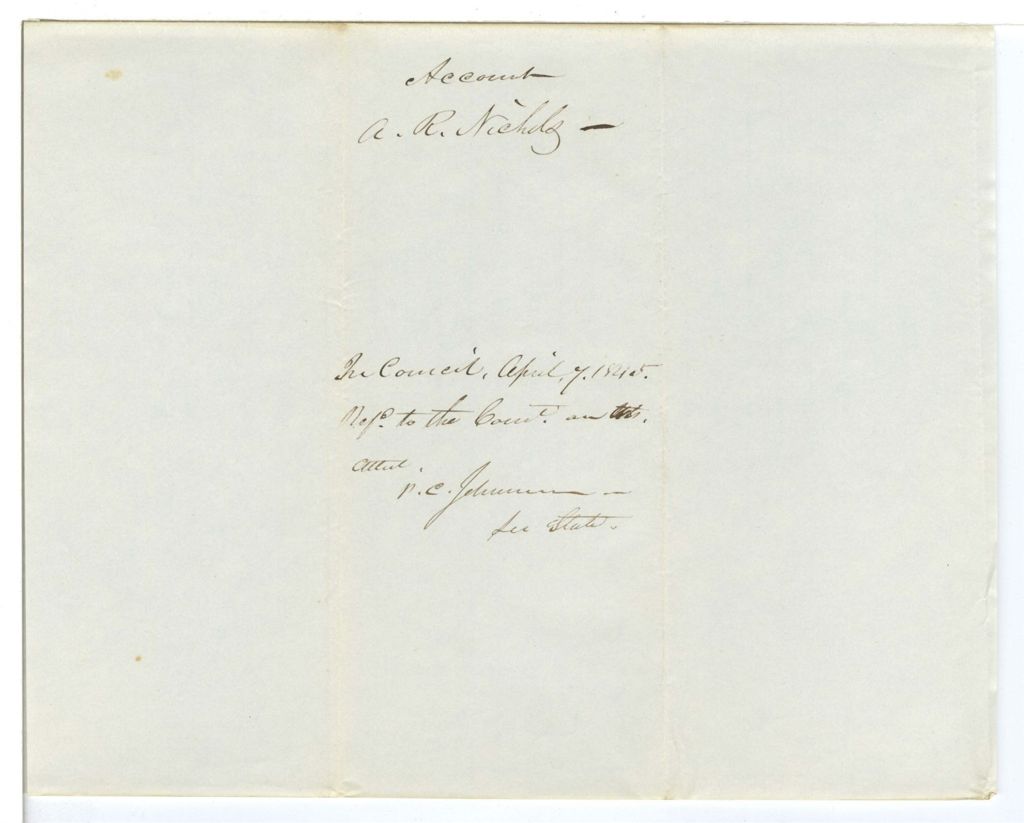 Account
A. R. Nichols —
In Council, April, 7. 1845.
Refd. to the Comt. on
Attest,
P. C. Johnson —
Sec State.